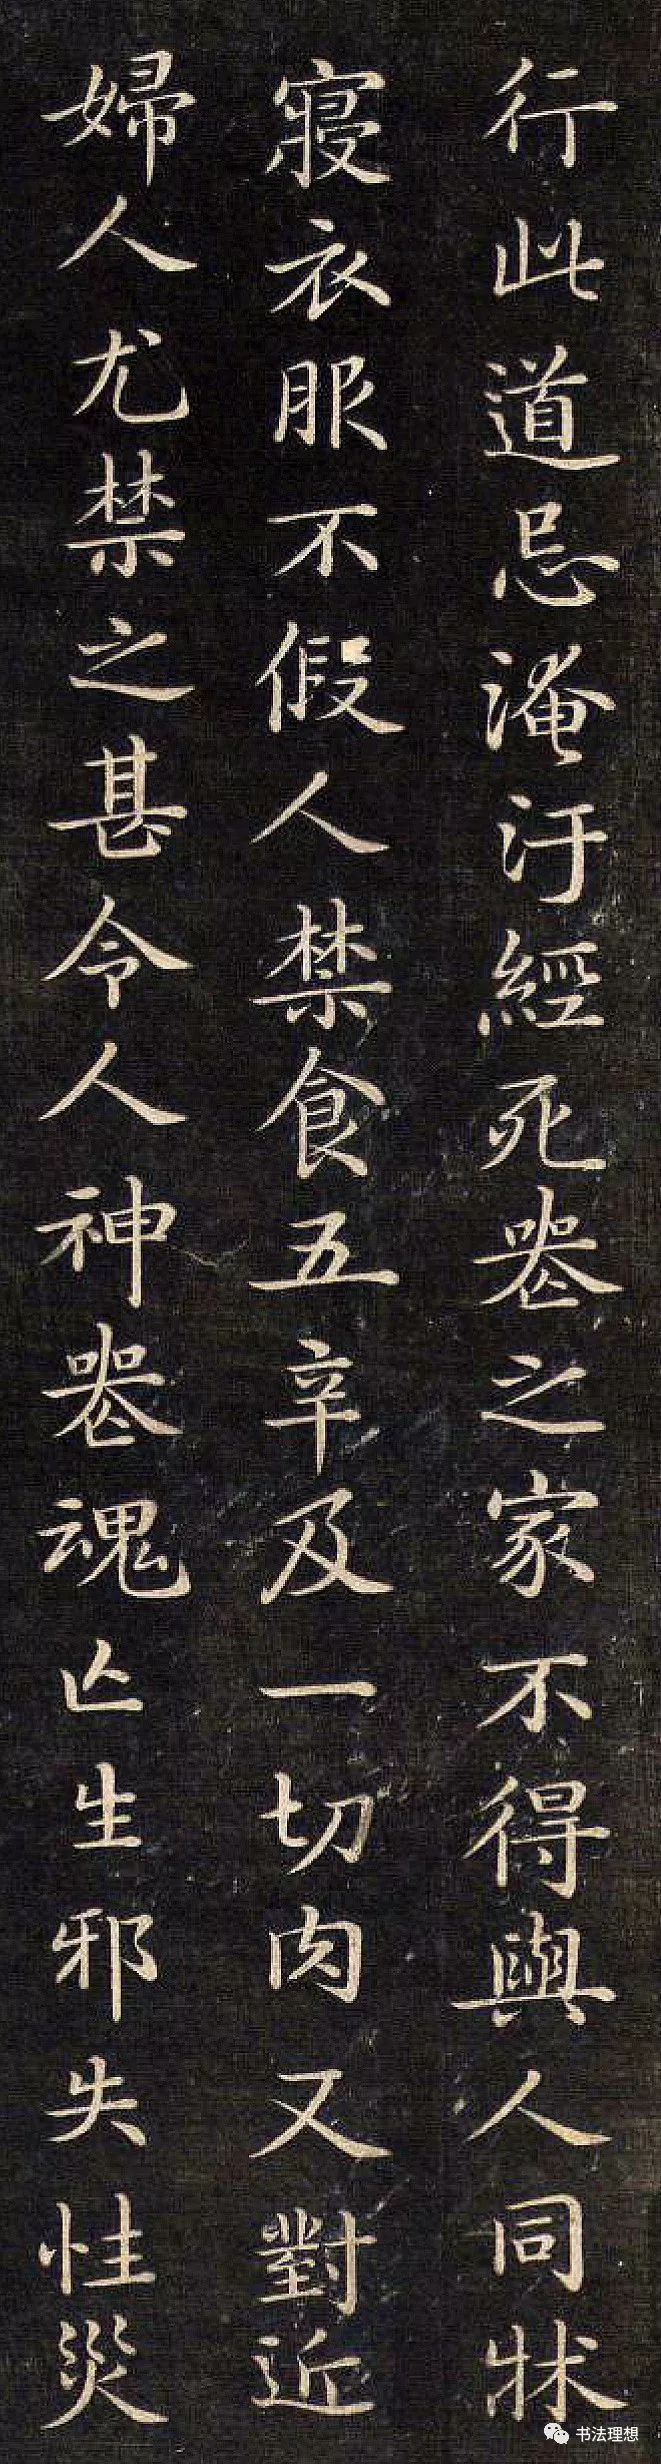 行此道忌淹汙經死䘮之家不得與人同牀
寢衣服不假人禁食五辛及一切肉又對近
婦人尤禁之甚令人神䘮魂亡生邪失性災
书法理想